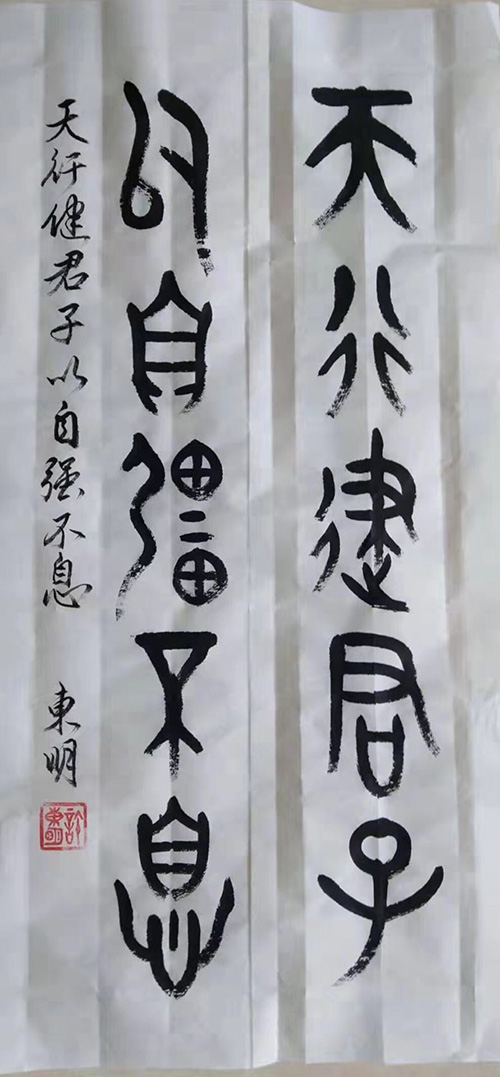 天行健君子
以自彊不息
天行健君子以自强不息 東明
許東明